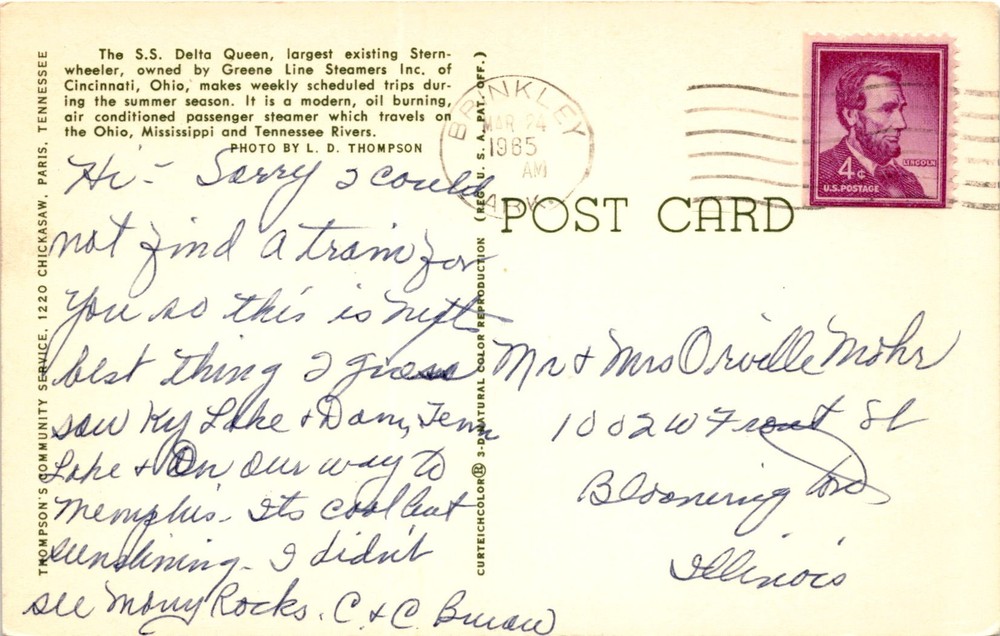 The S.S. Delta Queen, largest existing Stern-
wheeler, owned by Greene Line Steamers Inc. of
Cincinnati, Ohio, makes weekly scheduled trips dur-
ing the summer season. It is a modern, oil burning,
air conditioned passenger steamer which travels on
the Ohio, Mississippi and Tennessee Rivers.
PHOTO BY L. D. THOMPSON
THOMPSON'S COMMUNITY SERVICE, 1220 CHICKASAW, PARIS, TENNESSEE
Hi - Sorry I could
not find a train for
you so this is next
best thing I guess
saw Ky Lake & Dam, Tenn
Lake & On our way to
Memphis. Its cool but
sunshining. I didn't
see many Rocks. C. & C.
CURTEICHCOLOR® 3-D NATURAL COLOR REPRODUCTION (REG. U. S. A. PAT. OFF.)
BRINKLEY
MAR 24
1965
AM
POST CARD
4¢
LINCOLN
U.S. POSTAGE
Mr & Mrs Orville Mohr
1002 W Front St
Bloomington
Illinois